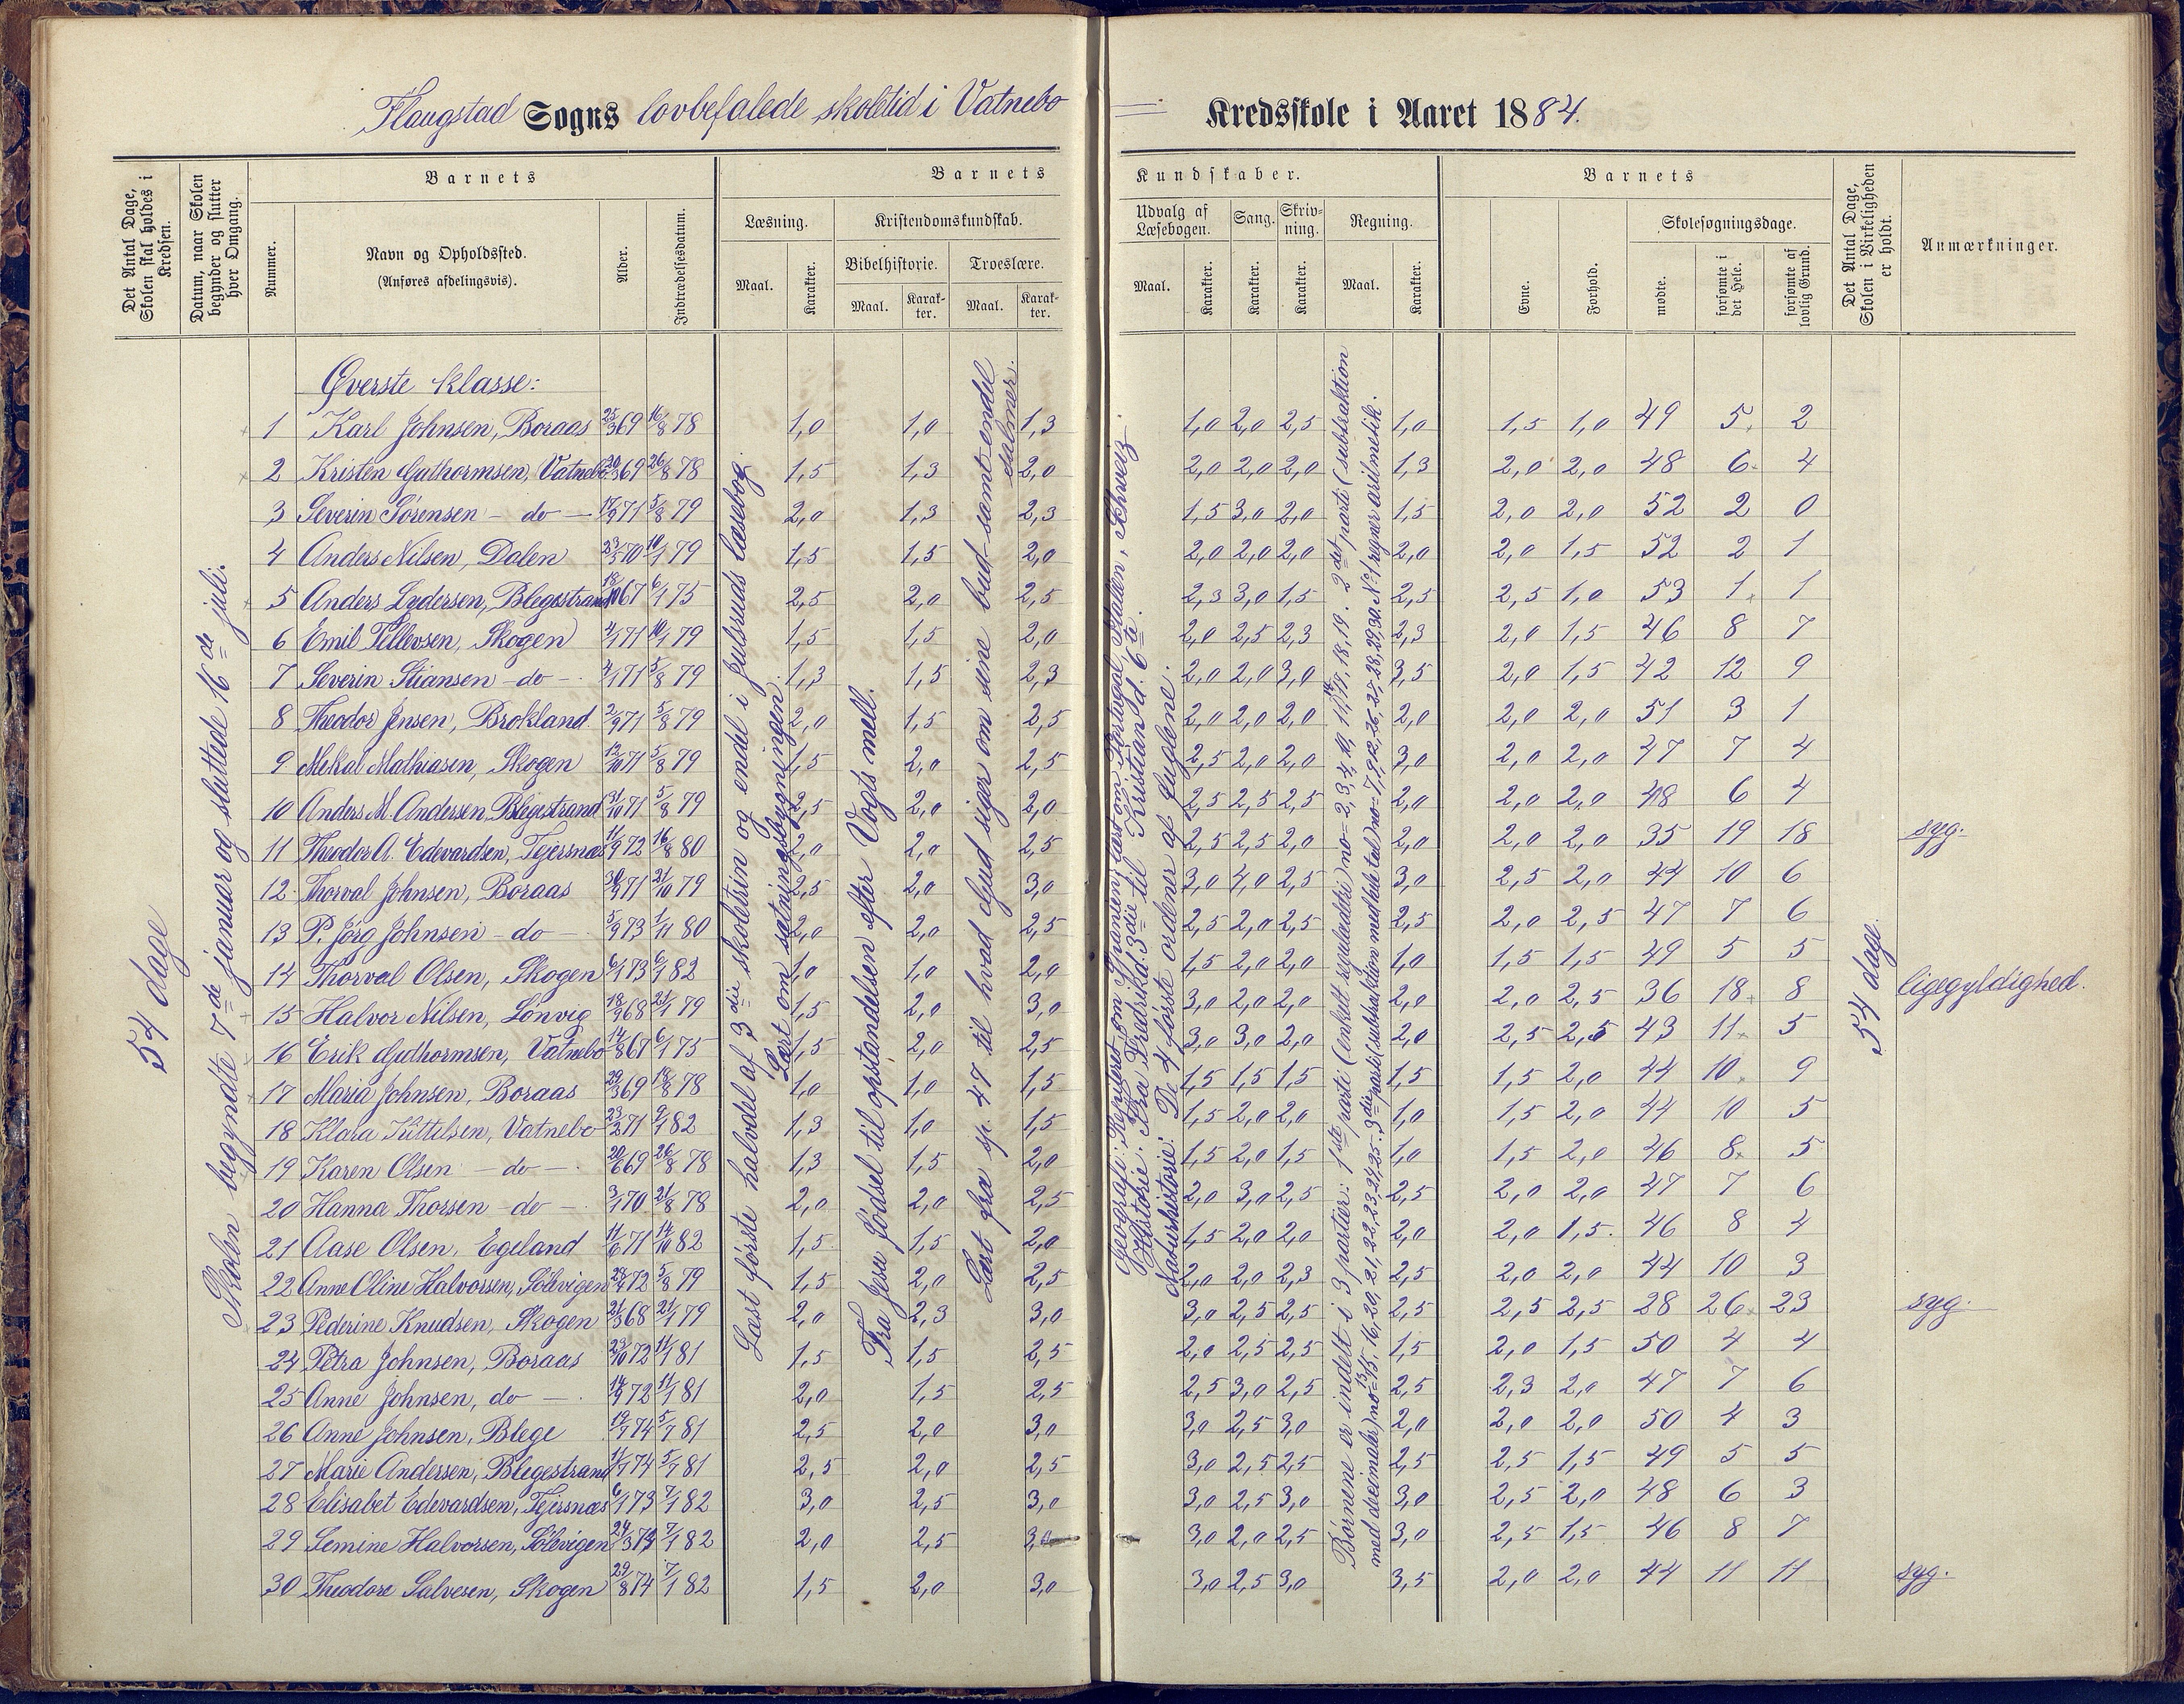 Flaugstad Sogns lovbefalede skoletid i Vatnebo Kredsskole i Aaret 1884.
Det Antal Dage, Skolen skal holdes i Kredsen.
Datum, naar Skolen begynder og slutter hver Omgang.
Barnets
Nummer.
Navn og Opholdssted.
(Anføres afdelingsvis).
Alder.
Indtrædelsesdatum.
Barnets Kundskaber.
Læsning.
Maal. Karakter.
Kristendomskundskab.
Bibelhistorie. Troeslære.
Maal. Karakter. Maal. Karakter.
Udvalg af Læsebogen. Sang. Skrivning. Regning.
Maal. Karakter. Karakter. Karakter. Maal. Karakter.
Barnets
Evne. Forhold.
Skolesøgningsdage.
mødte. forsømte i det Hele. forsømte af lovlig Grund.
Det Antal Dage, Skolen i Virkeligheden er holdt.
Anmærkninger.
54 dage
Skolen begyndte 7de januar og sluttede 16de juli.
Læst første halvdel af 3die skoletrin og endel i Julsruds læsebog.
Lært om sætningsbygningen.
Fra Jesu Fødsel til opstandelsen efter Vogts mell.
Læst fra sp. 47 til hvad Gud siger om sine bud samt endel salmer.
Geografi: Repeteret om Spanien, læst om Portugal, Italien, Schweiz
Historie: Fra Fredrik d. 3die til Kristian d. 6te.
Naturhistorie: De 4 første ordner af fuglene.
Børnene er inddelt i 3 partier: 1ste parti (enkelt reguladetri) no= 2, 3, 4, 10, 11, 14, 17, 18, 19. 2det parti (subtraktion
med decimaler) no= 13, 15, 16, 20, 21, 22, 23, 24, 25. 3die parti (subtraktion med hele tal) no= 7, 9, 12, 26, 27, 28, 29, 30. No 1 regner aritmetik.
54 dage
Øverste klasse:
1 Karl Johnsen, Boraas 25/3 69 16/8 78 1,0 1,0 1,3 1,0 2,0 2,5 1,0 1,5 1,0 49 5 2
2 Kristen Guthormsen, Vatnebo 20/3 69 26/8 78 1,5 1,3 2,0 2,0 2,0 2,0 1,3 2,0 2,0 48 6 4
3 Severin Sørensen - do - 17/9 71 5/8 79 2,0 1,3 2,3 1,5 3,0 2,0 1,5 2,0 2,0 52 2 0
4 Anders Nilsen, Dalen 23/5 70 10/1 79 1,5 1,5 2,0 2,0 2,0 2,0 2,0 2,0 1,5 52 2 1
5 Anders Lydersen, Blegestrand 18/10 67 6/1 75 2,5 2,0 2,5 2,3 3,0 1,5 2,5 2,5 1,0 53 1 1
6 Emil Tellevsen, Skogen 4/1 71 10/1 79 1,5 1,5 2,0 2,0 2,5 2,3 2,3 2,0 1,5 46 8 7
7 Severin Stiansen - do - 4/1 71 5/8 79 1,3 1,5 2,3 2,0 2,0 3,0 3,5 2,0 1,5 42 12 9
8 Theodor Jensen, Brokland. 2/9 71 5/8 79 2,0 1,5 2,5 2,0 2,0 2,0 2,0 2,0 2,0 51 3 1
9 Mekal Mathiasen, Skogen 12/10 71 5/8 79 1,5 2,0 2,5 2,5 2,0 2,0 3,0 2,0 2,0 47 7 4
10 Anders M. Andersen Blegestrand 31/10 71 5/8 79 2,5 2,0 2,0 2,5 2,5 2,5 2,0 2,0 2,0 48 6 4
11 Theodor A. Edevardsen, Tejersnæs 11/9 72 16/8 80 2,0 2,0 2,5 2,5 2,5 2,0 2,0 2,0 2,0 35 19 18 syg.
12 Thorval Johnsen, Boraas 30/9 71 21/10 79 2,5 2,0 3,0 3,0 4,0 2,5 3,0 2,5 2,0 44 10 6
13 P. Jørg Johnsen - do - 5/9 73 1/11 80 2,0 2,0 2,5 2,5 2,0 2,5 2,5 2,0 2,5 47 7 6
14 Thorval Olsen, Skogen 6/1 73 6/1 82 1,0 1,0 2,0 1,5 2,0 2,0 1,0 1,5 1,5 49 5 5
15 Halvor Nilsen, Lønvig 18/9 68 21/1 79 1,5 2,0 3,0 3,0 2,0 2,0 2,0 2,0 2,5 36 18 8 ligegyldighed.
16 Erik Guthormsen, Vatnebo 14/8 67 6/1 75 1,5 2,0 2,5 3,0 3,0 2,0 2,0 2,5 2,5 43 11 5
17 Maria Johnsen, Boraas 29/3 69 19/8 78 1,0 1,0 1,5 1,5 1,5 1,5 1,5 1,5 2,0 44 10 9
18 Klara Kittelsen, Vatnebo 23/2 71 9/1 82 1,3 1,0 1,5 1,5 2,0 2,0 1,0 1,5 2,0 44 10 5
19 Karen Olsen - do - 20/6 69 26/8 78 1,3 1,5 2,0 1,5 2,0 1,5 1,0 1,5 2,0 46 8 5
20 Hanna Thorsen - do - 3/1 70 21/8 78 2,0 2,0 2,5 2,0 3,0 2,5 2,5 2,0 2,0 47 7 6
21 Aase Olsen, Egeland 11/6 71 14/10 82 1,5 1,5 2,0 1,5 2,0 2,0 2,0 2,0 1,5 46 8 4
22 Anne Oline Halvorsen, Sølevigen 28/4 72 5/8 79 1,5 2,0 2,5 2,0 2,0 2,3 2,5 2,0 2,0 44 10 3
23 Pederine Knudsen, Skogen 21/3 68 21/1 79 2,0 2,3 3,0 3,0 2,5 2,5 2,5 2,5 2,5 28 26 23 syg.
24 Petra Johnsen, Boraas 23/10 72 11/1 81 1,5 1,5 2,5 2,0 2,5 2,5 1,5 2,0 1,5 50 4 4
25 Anne Johnsen, do - 14/9 72 11/1 81 2,0 1,5 2,5 2,5 3,0 2,5 2,5 2,3 2,0 47 7 6
26 Anne Johnsen, Blege 19/7 74 5/7 81 2,5 2,0 3,0 3,0 2,5 3,0 2,0 2,0 2,0 50 4 3
27 Marie Andersen, Blegestrand 11/7 74 5/7 81 2,5 2,0 2,5 3,0 2,5 2,5 2,5 2,5 1,5 49 5 5
28 Elisabet Edevardsen, Tejersnæs 6/1 73 7/1 82 3,0 2,5 3,0 3,0 2,5 3,0 3,0 2,5 2,0 48 6 3
29 Semine Halvorsen, Sølevigen 24/3 74 7/1 82 2,0 2,5 3,0 3,0 2,0 2,5 3,0 2,5 1,5 46 8 7
30 Theodore Salvesen, Skogen 29/8 74 7/1 82 1,5 2,0 3,0 3,0 2,5 3,0 3,5 2,0 2,0 44 11 11 syg.